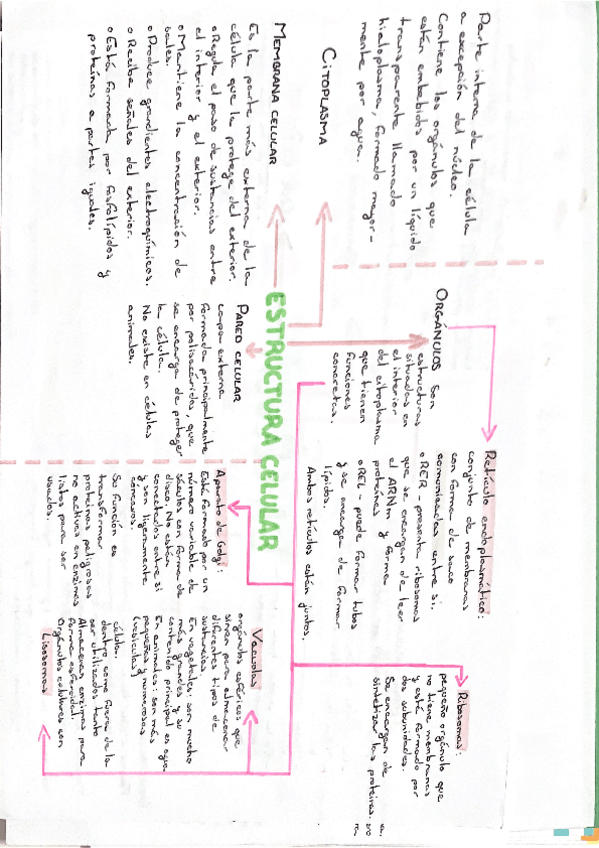 ESTRUCTURA CELULAR
CITOPLASMA
Parte interna de la célula
a excepción del núcleo.
Contiene los orgánulos que
están embebidos por un líquido
transparente llamado
hialoplasma, formado mayor-
mente por agua.
MEMBRANA CELULAR
Es la parte más externa de la
célula que la protege del exterior.
o Regula el paso de sustancias entre
el interior y el exterior.
o Mantiene la concentración de
sales.
o Produce grandientes electroquímicos.
o Recibe señales del exterior.
o Está formada por fosfolípidos y
proteínas a partes iguales.
ORGÁNULOS Son
estructuras
situadas en
el interior
del citoplasma
que tienen
funciones
concretas.
PARED CELULAR
capa externa
formada principalmente
por polisacáridos, que
se encarga de proteger
la célula.
No existe en células
animales.
Retículo endoplasmático:
conjunto de membranas
con forma de saco
comunicadas entre sí.
o RER presenta ribosomas
que se encargan de leer
el ARNm y forma
proteínas
o REL - puede formar tubos
y se encarga de formar
lípidos.
Ambos retículos están juntos.
Aparato de Golgi:
Está formado por un
número variable de
sáculos con forma de
disco. No están
conectados entre sí
y son ligeramente
cóncavos.
Su función es
transformar
proteínas peligrosas
no activas en enzimas
listas para ser
usadas.
Ribosomas:
pequeño orgánulo que
no tiene membranas
y está formado por
dos subunidades.
Se encargan de
sintetizar las proteínas.
Vacuolas
orgánulos esféricos que
sirven para almacenar
diferentes tipos de
sustancias
En vegetales: son mucho
más grandes y su
contenido principal es agua
En animales: son más
pequeñas y numerosas
(vesículas)
Lisosomas
Orgánulos celulares con
forma esferoidal
Almacenan enzimas para
ser utilizados tanto
dentro como fuera de la
célula.